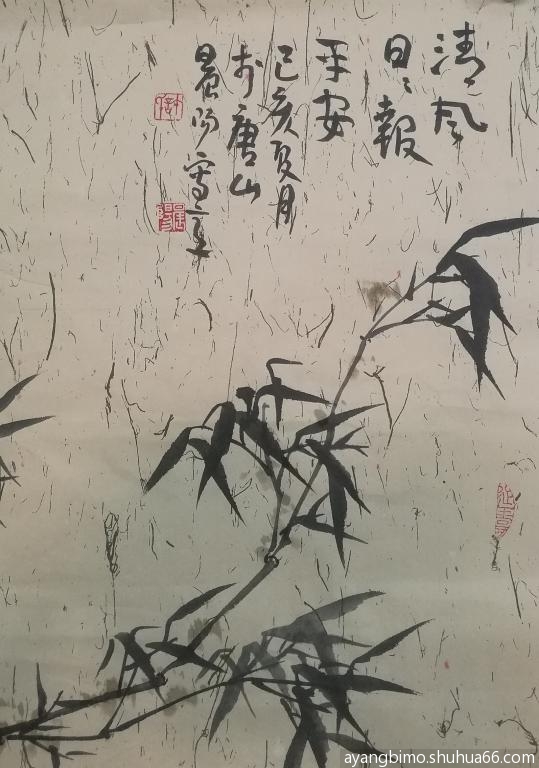 清风
日々報
平安
己亥夏月
於唐山
晨阳写意
ayangbimo.shuhua66.com